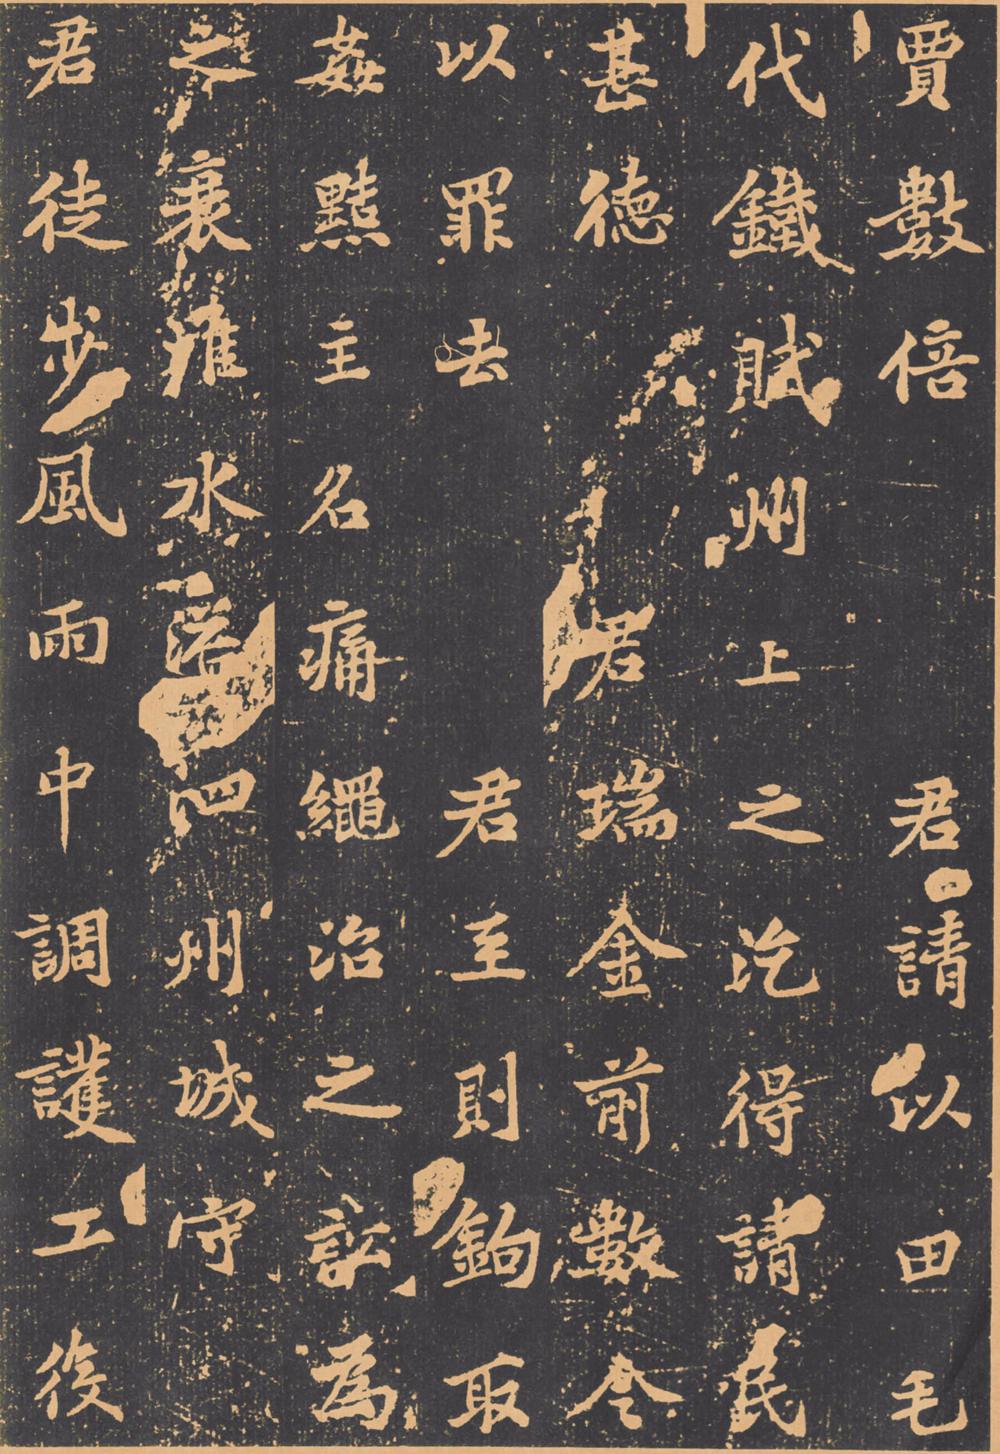 賈數倍君請以田毛
代鐵賦州上之汔得請民
甚德君瑞金前數令
以罪去君至則鉤取
姦黠主名痛繩治之訟為
之衰淮水泗州城守
君徒步風雨中調護工役